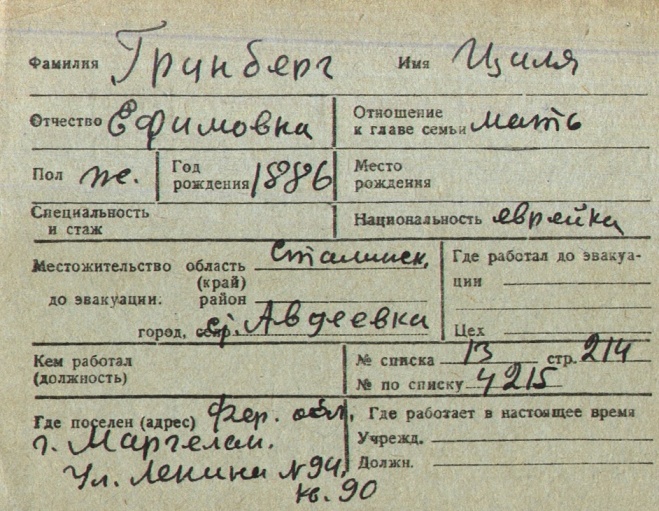 Фамилия Гринберг Имя Циля
Отчество Ефимовна Отношение
к главе семьи мать
Пол ж. Год
рождения 1886 Место
рождения
Специальность
и стаж Национальность еврейка
Местожительство область Сталинск. Где работал до эвакуа-
(край) ции
до эвакуации: район
город, ст. Авдеевка Цех
Кем работал № списка 13 стр. 214
(должность) № по списку 4215
Где поселен (адрес) Фер. обл, Где работает в настоящее время
г. Маргелан. Учрежд.
Ул. Ленина №94, Должн.
кв. 90